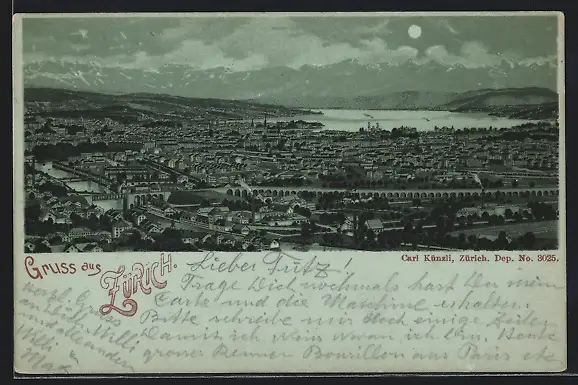 Gruss aus Zürich.
Carl Künzli, Zürich. Dep. No. 3025.
Lieber Fritz!
Frage Dich nochmals hast Du mein
Carte und die Maschine erhalten.
Bitte schreibe mir doch einige Zeilen
Damit ich weis woran ich bin. Beste
grosse Renner Bouillon aus Paris etc
Grüss
Willi
und alle andern
Willi
Max